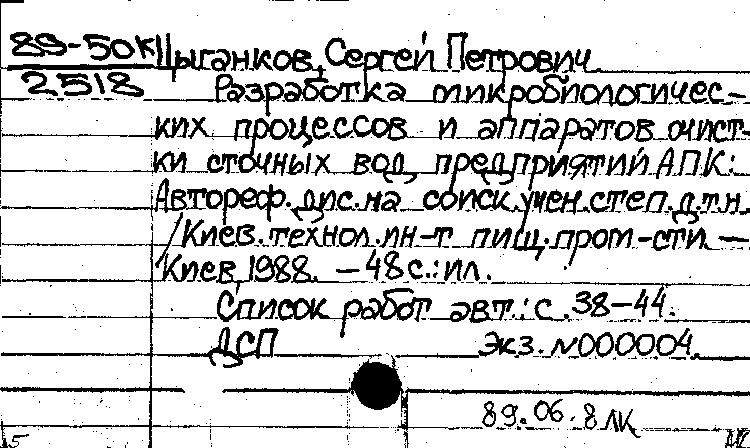 89-50к Цыганков, Сергей Петрович
2518
Разработка микробиологичес-
ких процессов и аппаратов очист-
ки сточных вод предприятий АПК:
Автореф. дис. на соиск. учен. степ. д.т.н.
/Киев. технол. ин-т пищ. пром-сти. —
Киев, 1988. — 48 с.: ил.
Список работ авт.: с. 38-44.
ДСП Экз. N000004.
89.06.8 ЛК